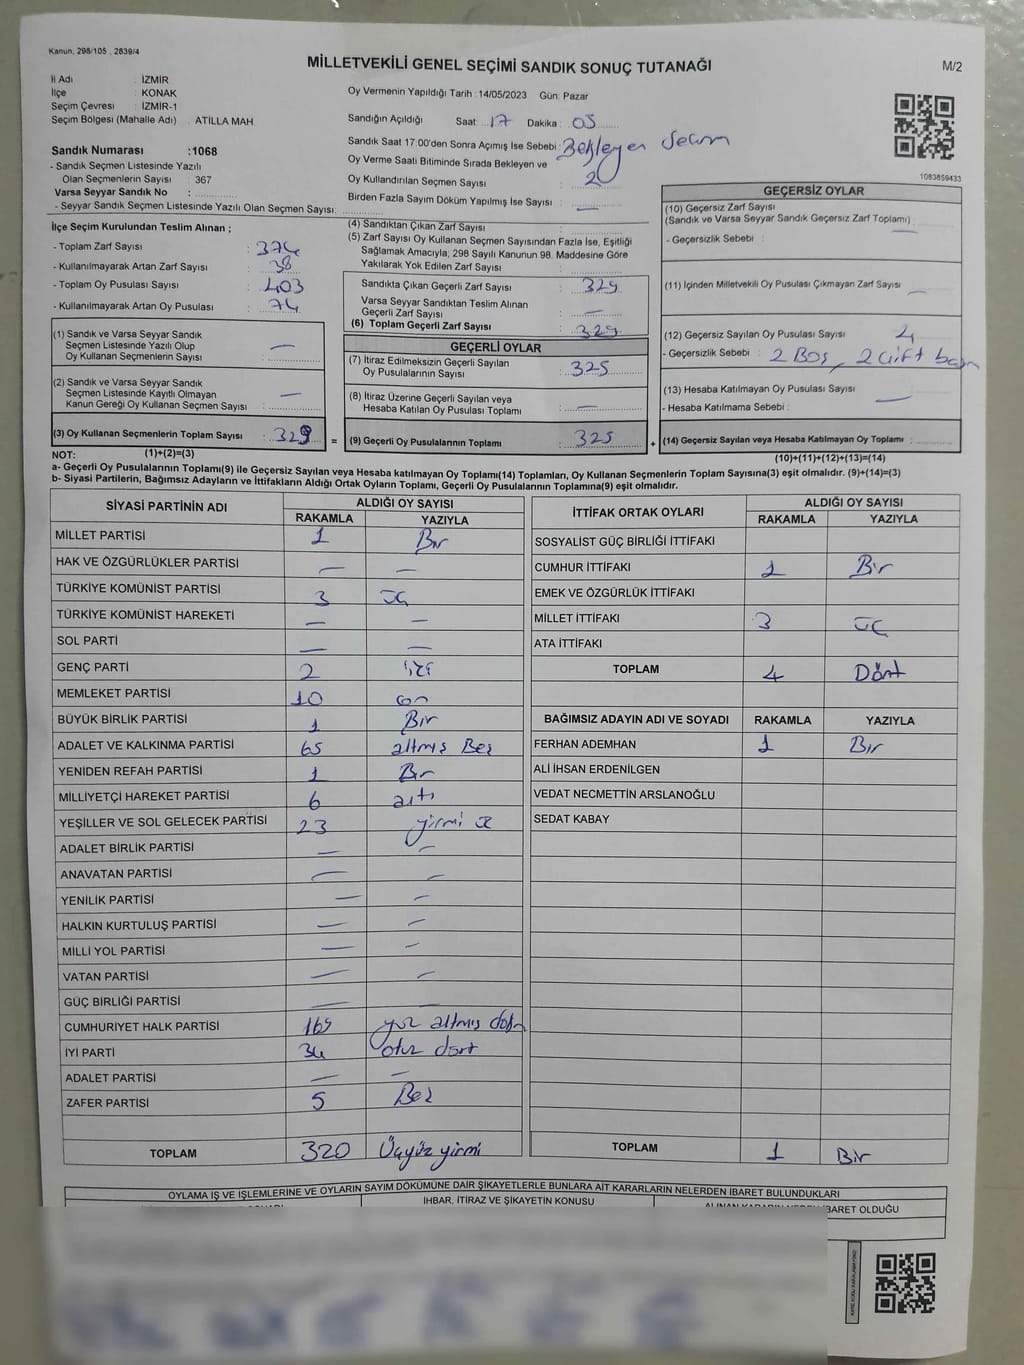 Kanun, 298/105 , 2839/4
MİLLETVEKİLİ GENEL SEÇİMİ SANDIK SONUÇ TUTANAĞI
M/2
İl Adı : İZMİR
İlçe : KONAK
Seçim Çevresi : İZMİR-1
Seçim Bölgesi (Mahalle Adı) : ATİLLA MAH.
Oy Vermenin Yapıldığı Tarih : 14/05/2023 Gün: Pazar
Sandığın Açıldığı Saat: 17 Dakika: 05
Sandık Saat 17:00'den Sonra Açımış İse Sebebi: Bekleyen Seçm
Oy Verme Saati Bitiminde Sırada Bekleyen ve
Oy Kullandırılan Seçmen Sayısı : 2
Birden Fazla Sayım Döküm Yapılmış İse Sayısı : —
1083859433
Sandık Numarası :1068
- Sandık Seçmen Listesinde Yazılı
Olan Seçmenlerin Sayısı : 367
Varsa Seyyar Sandık No :
- Seyyar Sandık Seçmen Listesinde Yazılı Olan Seçmen Sayısı:
İlçe Seçim Kurulundan Teslim Alınan ;
- Toplam Zarf Sayısı : 374
- Kullanılmayarak Artan Zarf Sayısı : 38
- Toplam Oy Pusulası Sayısı : 403
- Kullanılmayarak Artan Oy Pusulası : 74
(1) Sandık ve Varsa Seyyar Sandık
Seçmen Listesinde Yazılı Olup
Oy Kullanan Seçmenlerin Sayısı : —
(2) Sandık ve Varsa Seyyar Sandık
Seçmen Listesinde Kayıtlı Olmayan
Kanun Gereği Oy Kullanan Seçmen Sayısı : —
(3) Oy Kullanan Seçmenlerin Toplam Sayısı : 329
(1)+(2)=(3)
(4) Sandıktan Çıkan Zarf Sayısı :
(5) Zarf Sayısı Oy Kullanan Seçmen Sayısından Fazla İse, Eşitliği
Sağlamak Amacıyla; 298 Sayılı Kanunun 98. Maddesine Göre
Yakılarak Yok Edilen Zarf Sayısı :
Sandıkta Çıkan Geçerli Zarf Sayısı : 329
Varsa Seyyar Sandıktan Teslim Alınan
Geçerli Zarf Sayısı : —
(6) Toplam Geçerli Zarf Sayısı : 329
GEÇERLİ OYLAR
(7) İtiraz Edilmeksizin Geçerli Sayılan
Oy Pusulalarının Sayısı : 325
(8) İtiraz Üzerine Geçerli Sayılan veya
Hesaba Katılan Oy Pusulası Toplamı : —
= (9) Geçerli Oy Pusulalarının Toplamı : 325 +
GEÇERSİZ OYLAR
(10) Geçersiz Zarf Sayısı
(Sandık ve Varsa Seyyar Sandık Geçersiz Zarf Toplamı) —
- Geçersizlik Sebebi :
(11) İçinden Milletvekili Oy Pusulası Çıkmayan Zarf Sayısı —
(12) Geçersiz Sayılan Oy Pusulası Sayısı 4
- Geçersizlik Sebebi : 2 Boş, 2 Çift basm
(13) Hesaba Katılmayan Oy Pusulası Sayısı —
- Hesaba Katılmama Sebebi :
(14) Geçersiz Sayılan veya Hesaba Katılmayan Oy Toplamı :
(10)+(11)+(12)+(13)=(14)
NOT:
a- Geçerli Oy Pusulalarının Toplamı(9) ile Geçersiz Sayılan veya Hesaba katılmayan Oy Toplamı(14) Toplamları, Oy Kullanan Seçmenlerin Toplam Sayısına(3) eşit olmalıdır. (9)+(14)=(3)
b- Siyasi Partilerin, Bağımsız Adayların ve İttifakların Aldığı Ortak Oyların Toplamı, Geçerli Oy Pusulalarının Toplamına(9) eşit olmalıdır.
SİYASİ PARTİNİN ADI ALDIĞI OY SAYISI
RAKAMLA YAZIYLA
MİLLET PARTİSİ 1 Bir
HAK VE ÖZGÜRLÜKLER PARTİSİ — —
TÜRKİYE KOMÜNİST PARTİSİ 3 üç
TÜRKİYE KOMÜNİST HAREKETİ — —
SOL PARTİ — —
GENÇ PARTİ 2 iki
MEMLEKET PARTİSİ 10 on
BÜYÜK BİRLİK PARTİSİ 1 Bir
ADALET VE KALKINMA PARTİSİ 65 altmış Beş
YENİDEN REFAH PARTİSİ 1 Bir
MİLLİYETÇİ HAREKET PARTİSİ 6 altı
YEŞİLLER VE SOL GELECEK PARTİSİ 23 yirmi üç
ADALET BİRLİK PARTİSİ — —
ANAVATAN PARTİSİ — —
YENİLİK PARTİSİ — —
HALKIN KURTULUŞ PARTİSİ — —
MİLLİ YOL PARTİSİ — —
VATAN PARTİSİ — —
GÜÇ BİRLİĞİ PARTİSİ — —
CUMHURİYET HALK PARTİSİ 169 yüz altmış
İYİ PARTİ 34 otuz dört
ADALET PARTİSİ — —
ZAFER PARTİSİ 5 Beş
TOPLAM 320 Üçyüz yirmi
İTTİFAK ORTAK OYLARI ALDIĞI OY SAYISI
RAKAMLA YAZIYLA
SOSYALİST GÜÇ BİRLİĞİ İTTİFAKI
CUMHUR İTTİFAKI 1 Bir
EMEK VE ÖZGÜRLÜK İTTİFAKI
MİLLET İTTİFAKI 3 üç
ATA İTTİFAKI
TOPLAM 4 Dört
BAĞIMSIZ ADAYIN ADI VE SOYADI RAKAMLA YAZIYLA
FERHAN ADEMHAN 1 Bir
ALİ İHSAN ERDENİLGEN
VEDAT NECMETTİN ARSLANOĞLU
SEDAT KABAY
TOPLAM 1 Bir
OYLAMA İŞ VE İŞLEMLERİNE VE OYLARIN SAYIM DÖKÜMÜNE DAİR ŞİKAYETLERLE BUNLARA AİT KARARLARIN NELERDEN İBARET BULUNDUKLARI
İHBAR, İTİRAZ VE ŞİKAYETİN KONUSU
İBARET OLDUĞU